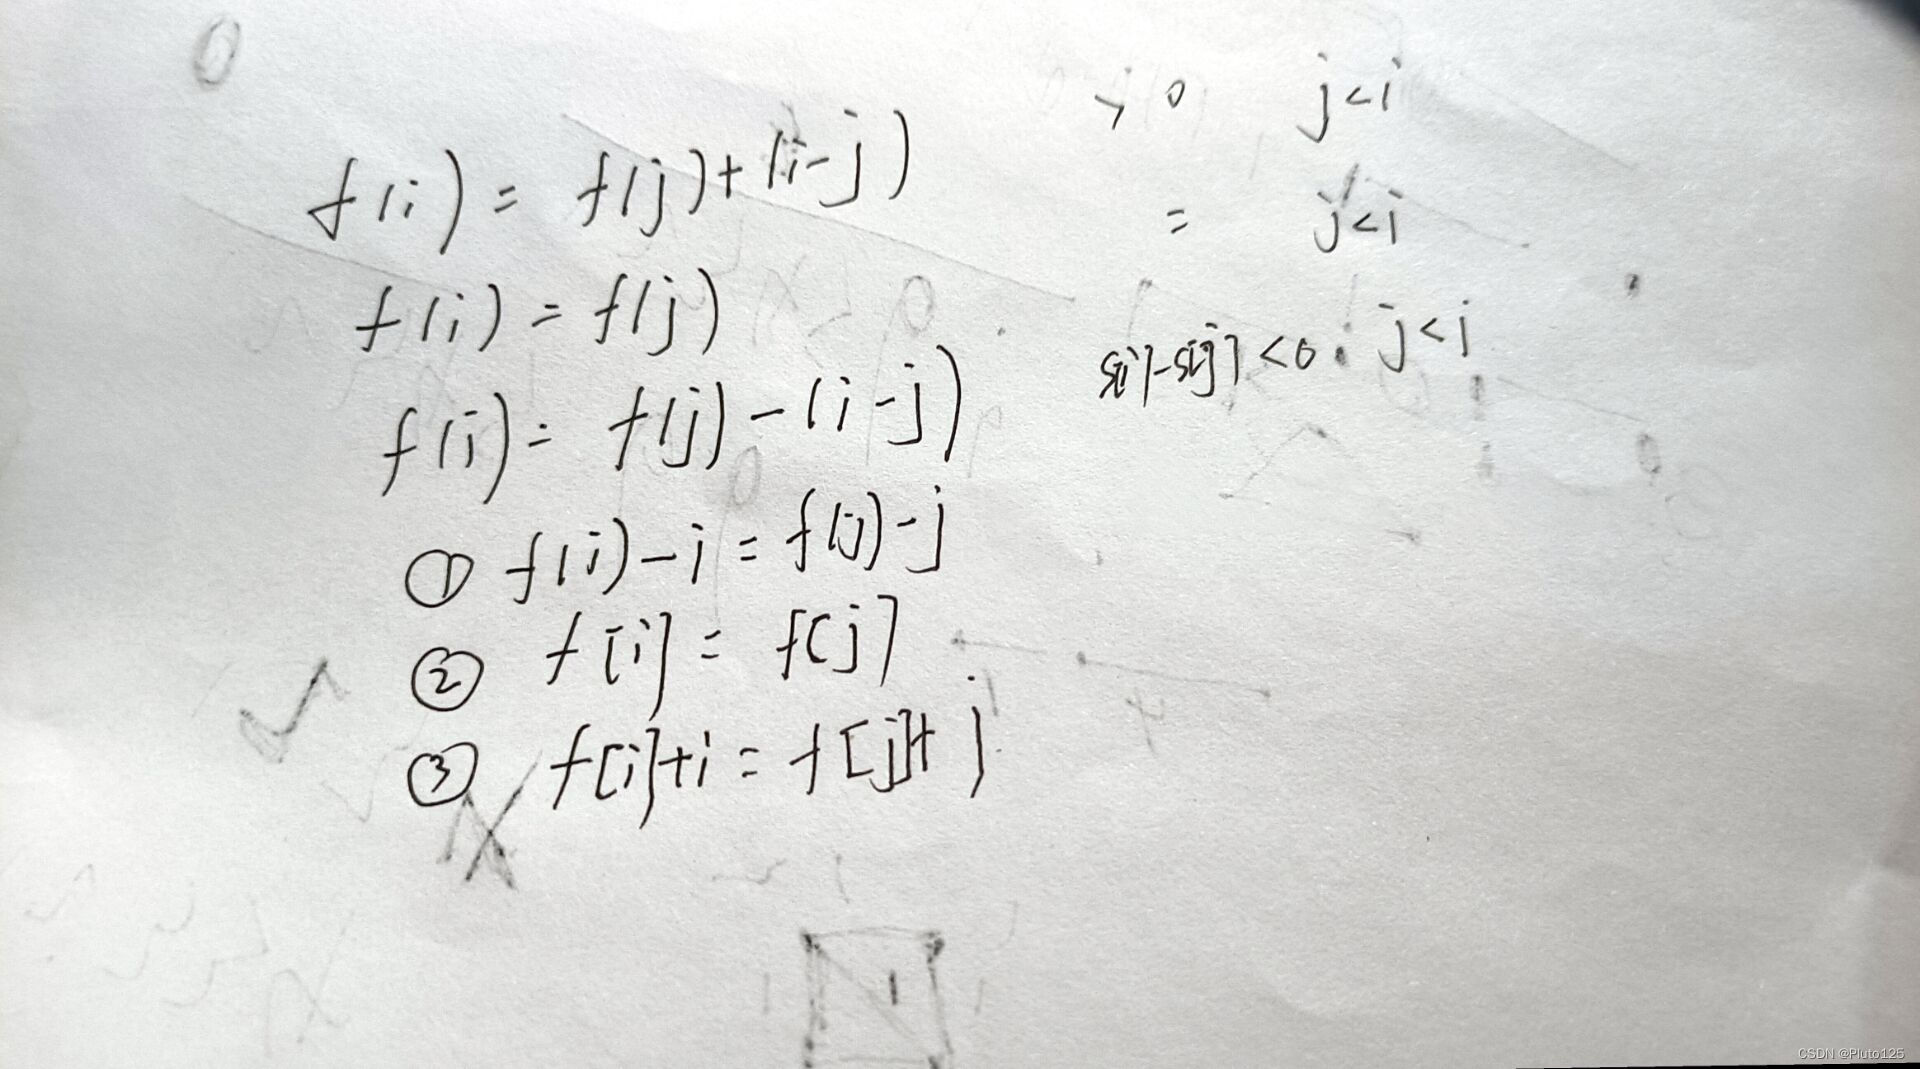 f(i) = f(j)+(i-j) >0 j<i
f(i) = f(j) = j<i
f(i) = f(j)-(i-j) s[i]-s[j]<0 j<i
① f(i)-i = f(j)-j
② f[i] = f[j]
③ f[i]+i = f[j]+j
CSDN @Pluto125